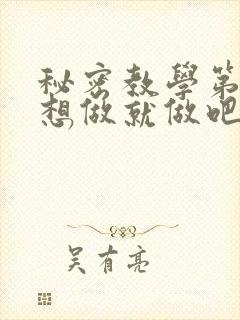 秘密教學第
想做就做吧
吴有亮